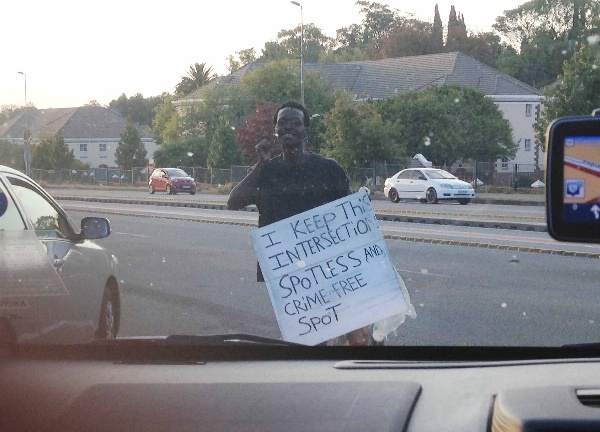 I KEEP THIS
INTERSECTION
SPOTLESS AND
CRIME-FREE
SPOT